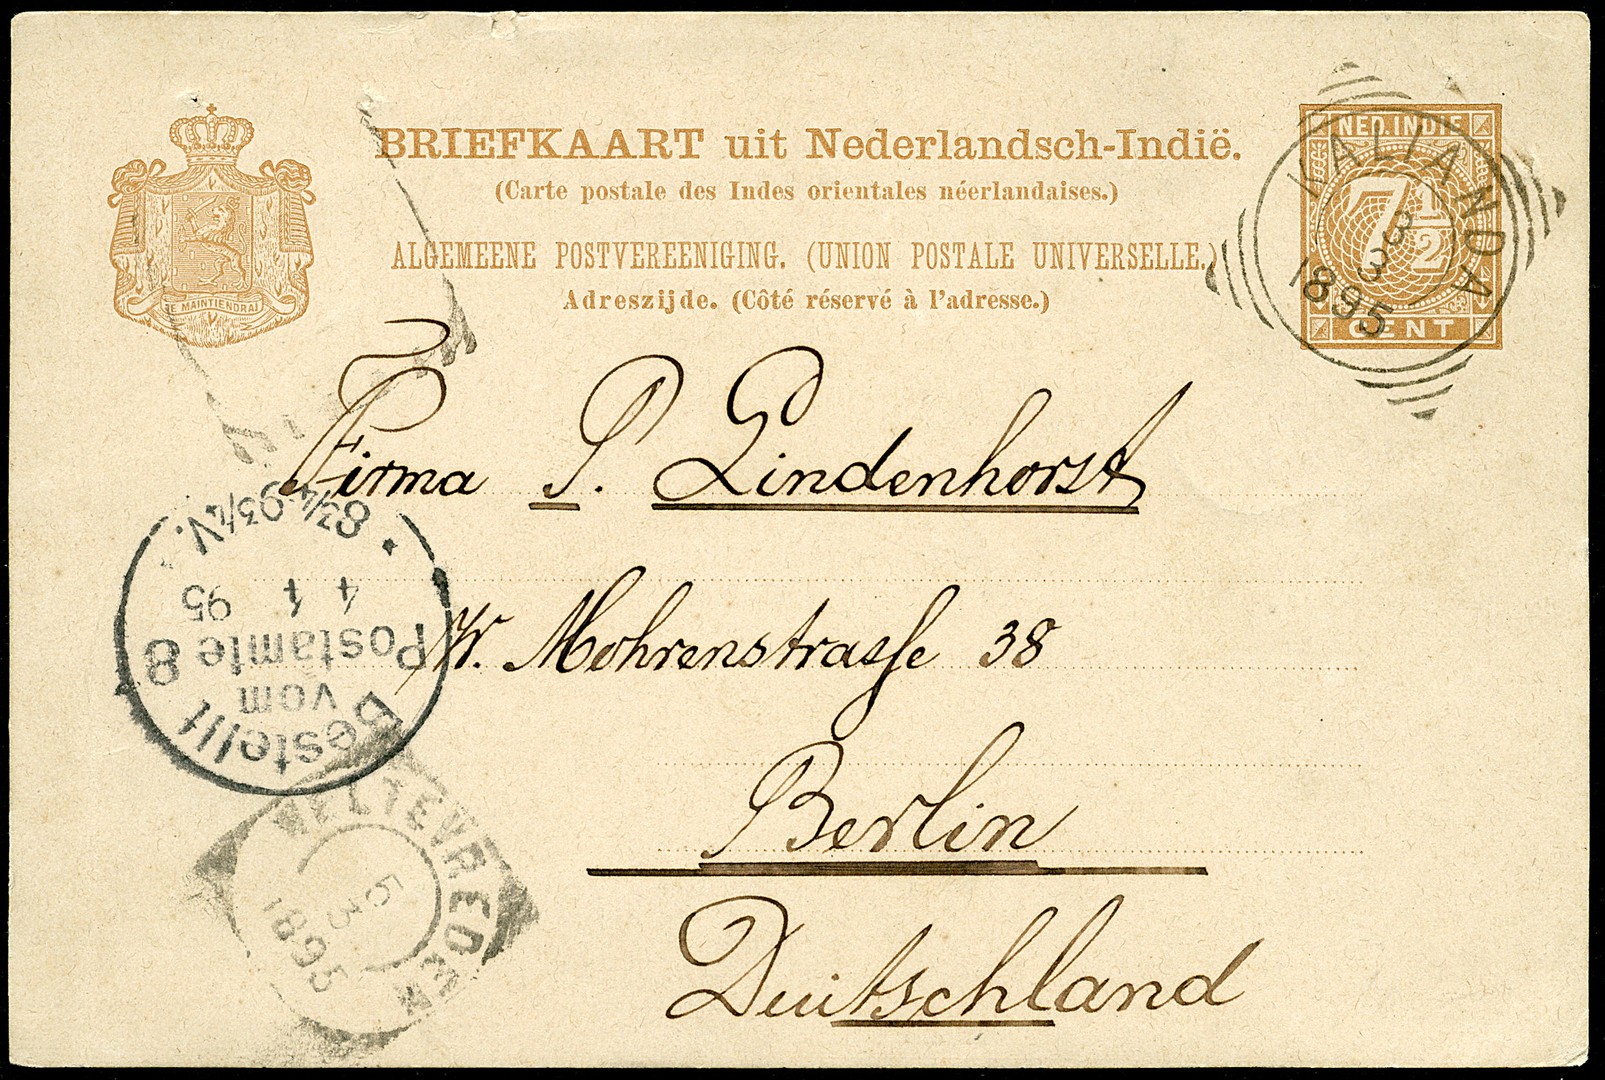 BRIEFKAART uit Nederlandsch-Indië.
(Carte postale des Indes orientales néerlandaises.)
ALGEMEENE POSTVEREENIGING. (UNION POSTALE UNIVERSELLE.)
Adreszijde. (Côté réservé à l'adresse.)
JE MAINTIENDRAI
NED. INDIE
7 1/2
CENT
KALIANDA
3
3
1895
Firma P. Lindenhorst
W. Mohrenstrasse 38
Berlin
Deutschland
Bestellt
vom
Postamte 8
4 4 95
8 3/4-9 3/4 V.
WELTEVREDEN
5
3
1895